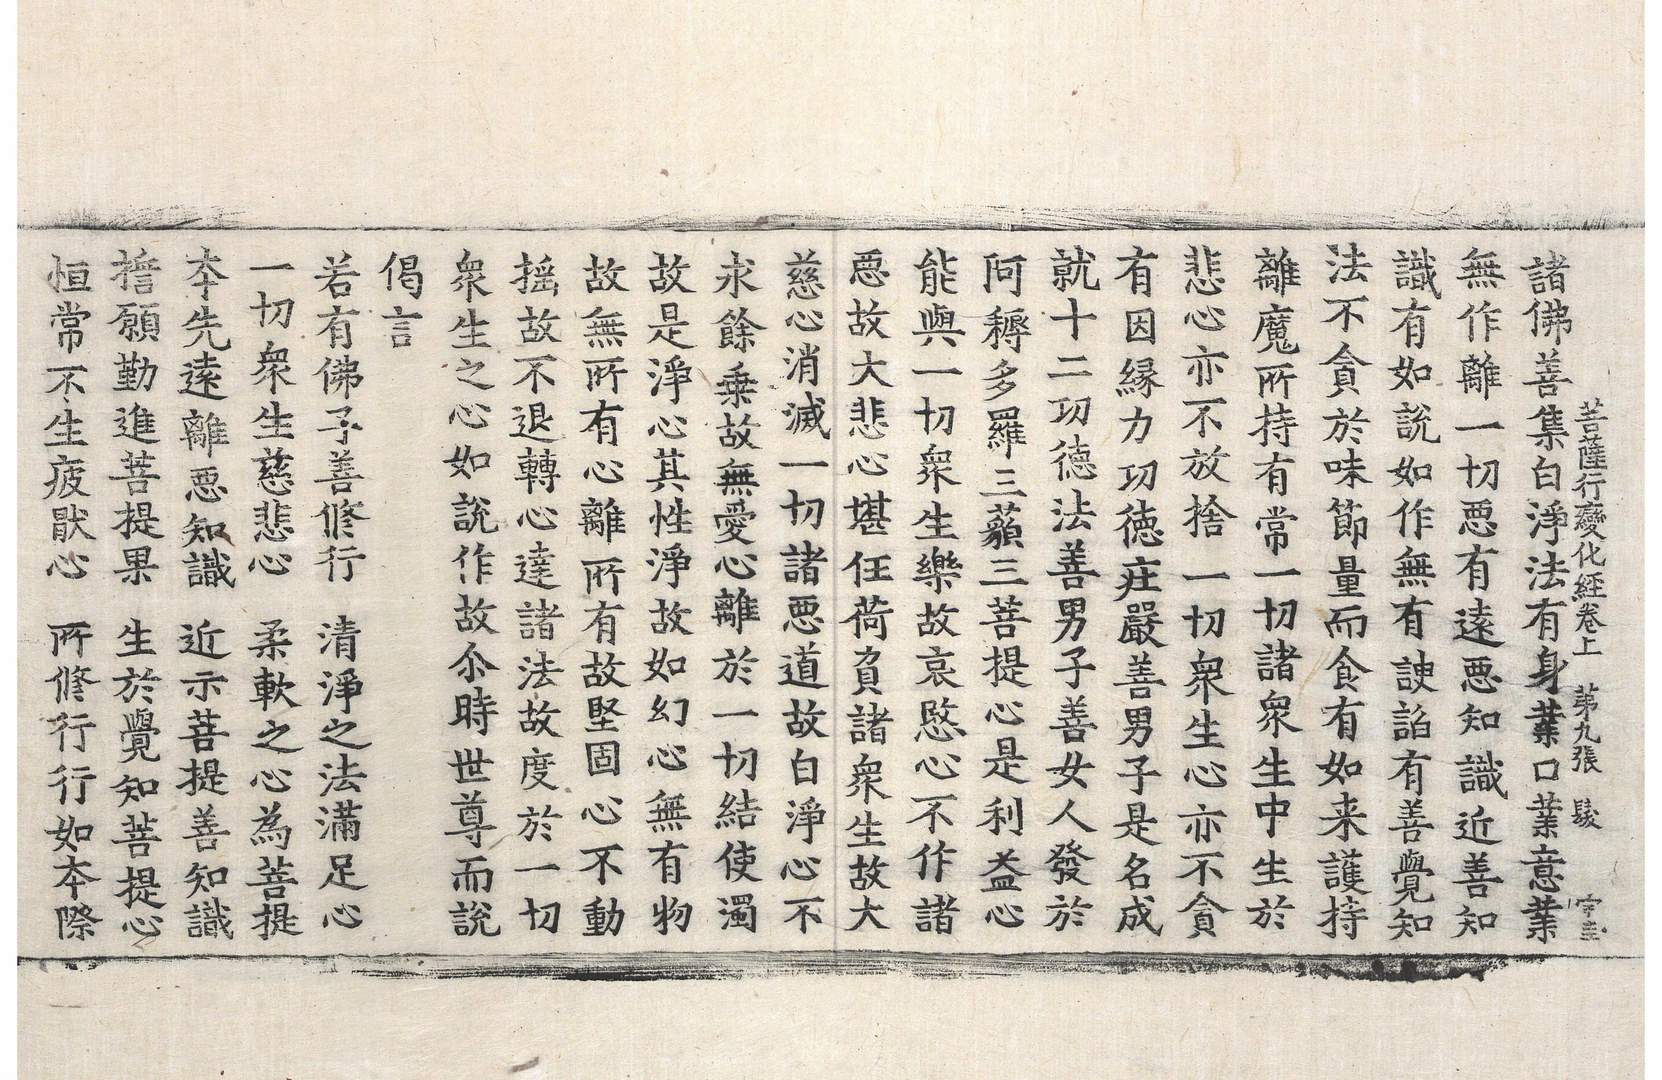 菩薩行變化經卷上 第九張 髮 宇圭
諸佛善集白淨法有身業口業意業
無作離一切悪有遠悪知識近善知
識有如說如作無有諛諂有善覺知
法不貪於味節量而食有如来護持
離魔所持有常一切諸衆生中生於
悲心亦不放捨一切衆生心亦不貪
有因縁力功徳庄嚴善男子是名成
就十二功德法善男子善女人發於
阿耨多羅三藐三菩提心是利益心
能與一切衆生樂故哀愍心不作諸
悪故大悲心堪任荷負諸衆生故大
慈心消滅一切諸悪道故白淨心不
求餘乗故無愛心離於一切結使濁
故是淨心其性淨故如幻心無有物
故無所有心離所有故堅固心不動
揺故不退轉心達諸法故度於一切
衆生之心如說作故尒時世尊而說
偈言
若有佛子善修行 清淨之法滿足心
一切衆生慈悲心 柔軟之心為菩提
夲先遠離悪知識 近示菩提善知識
擔願勤進菩提果 生於覺知菩提心
恒常不生疲猒心 所修行行如夲際